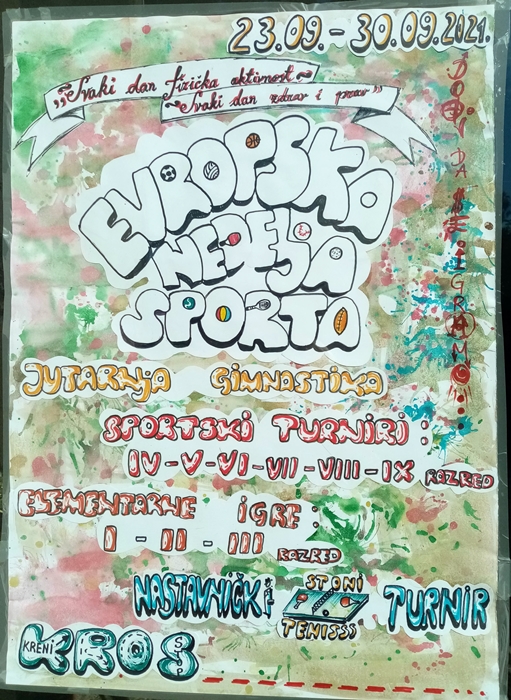 23.09.-30.09.2021.
„Svaki dan fizička aktivnost-
-Svaki dan zdrav i prav”
DOĐI DA SE IGRAMO...
EVROPSKA
NEDELJA
SPORTA
JUTARNJA GIMNASTIKA
SPORTSKI TURNIRI:
IV-V-VI-VII-VIII-IX RAZRED
ELEMENTARNE IGRE:
I-II-III RAZRED
NASTAVNIČKI STONI TENISSS TURNIR
KRENI KROS STOP